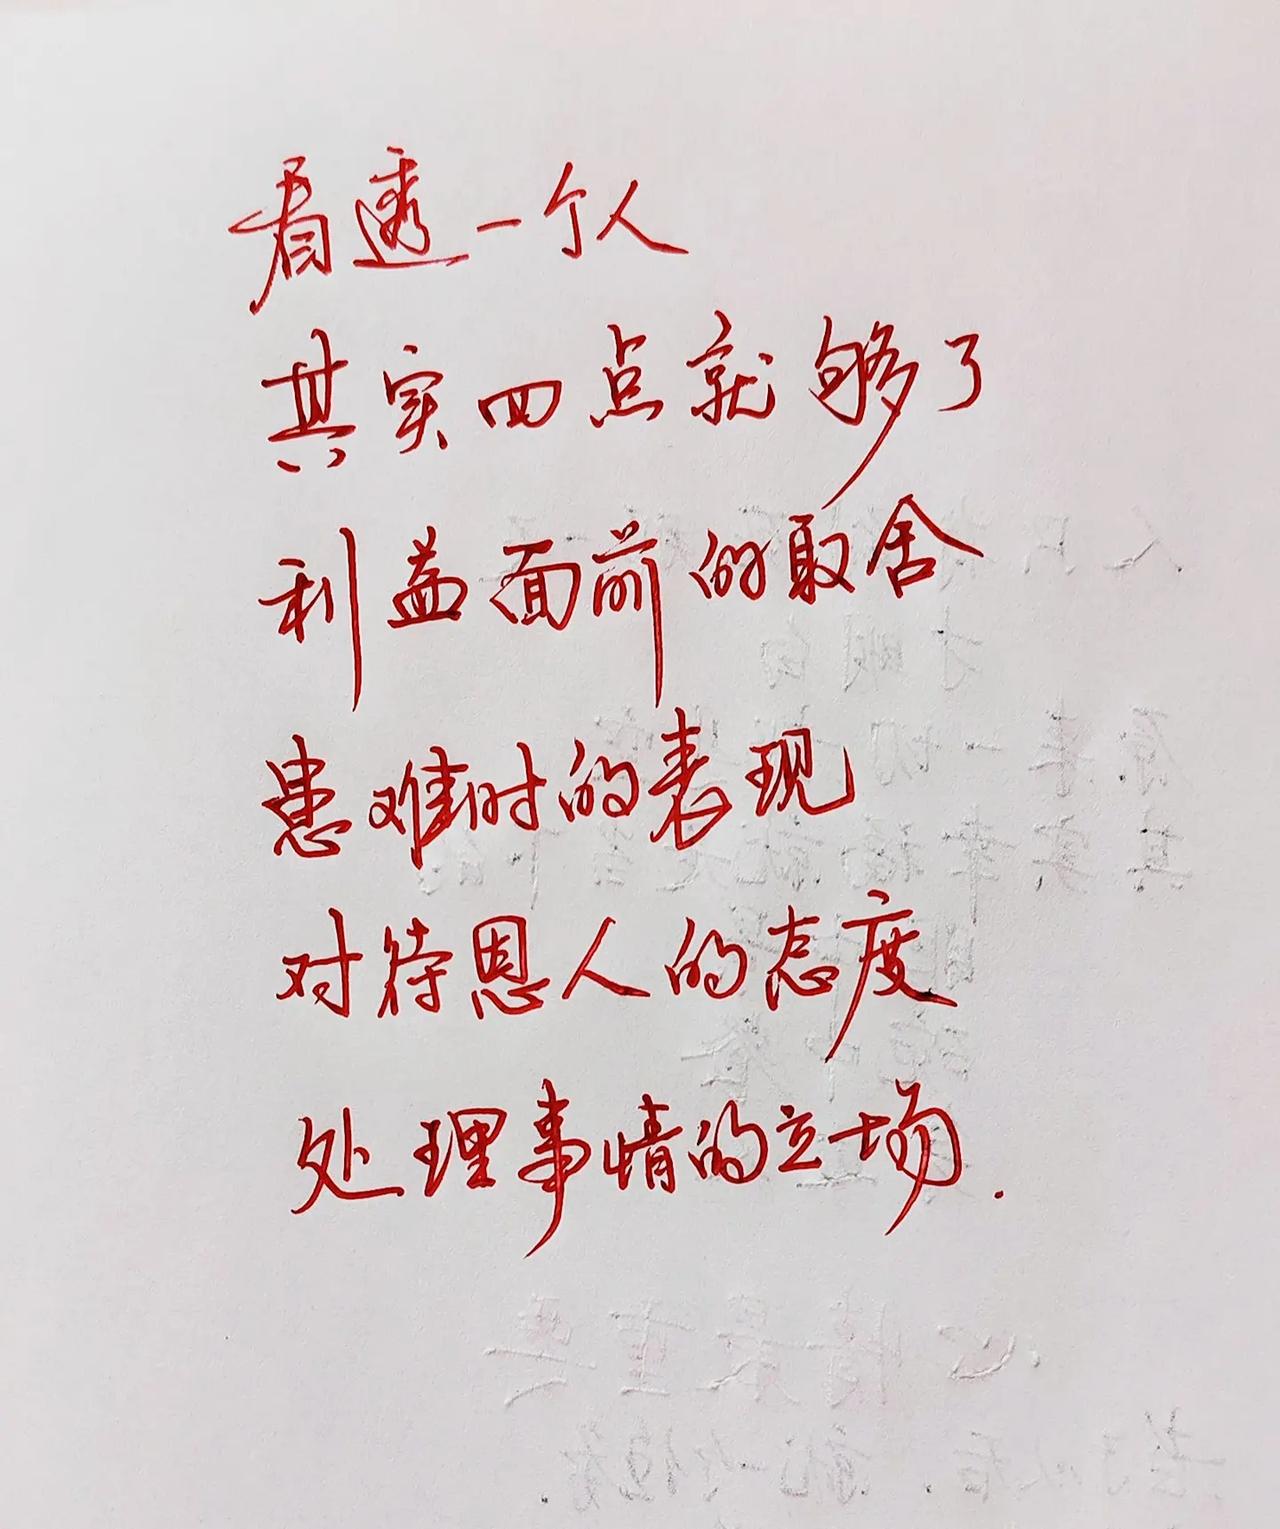 看透一个人
其实四点就够了
利益面前的取舍
患难时的表现
对待恩人的态度
处理事情的立场.